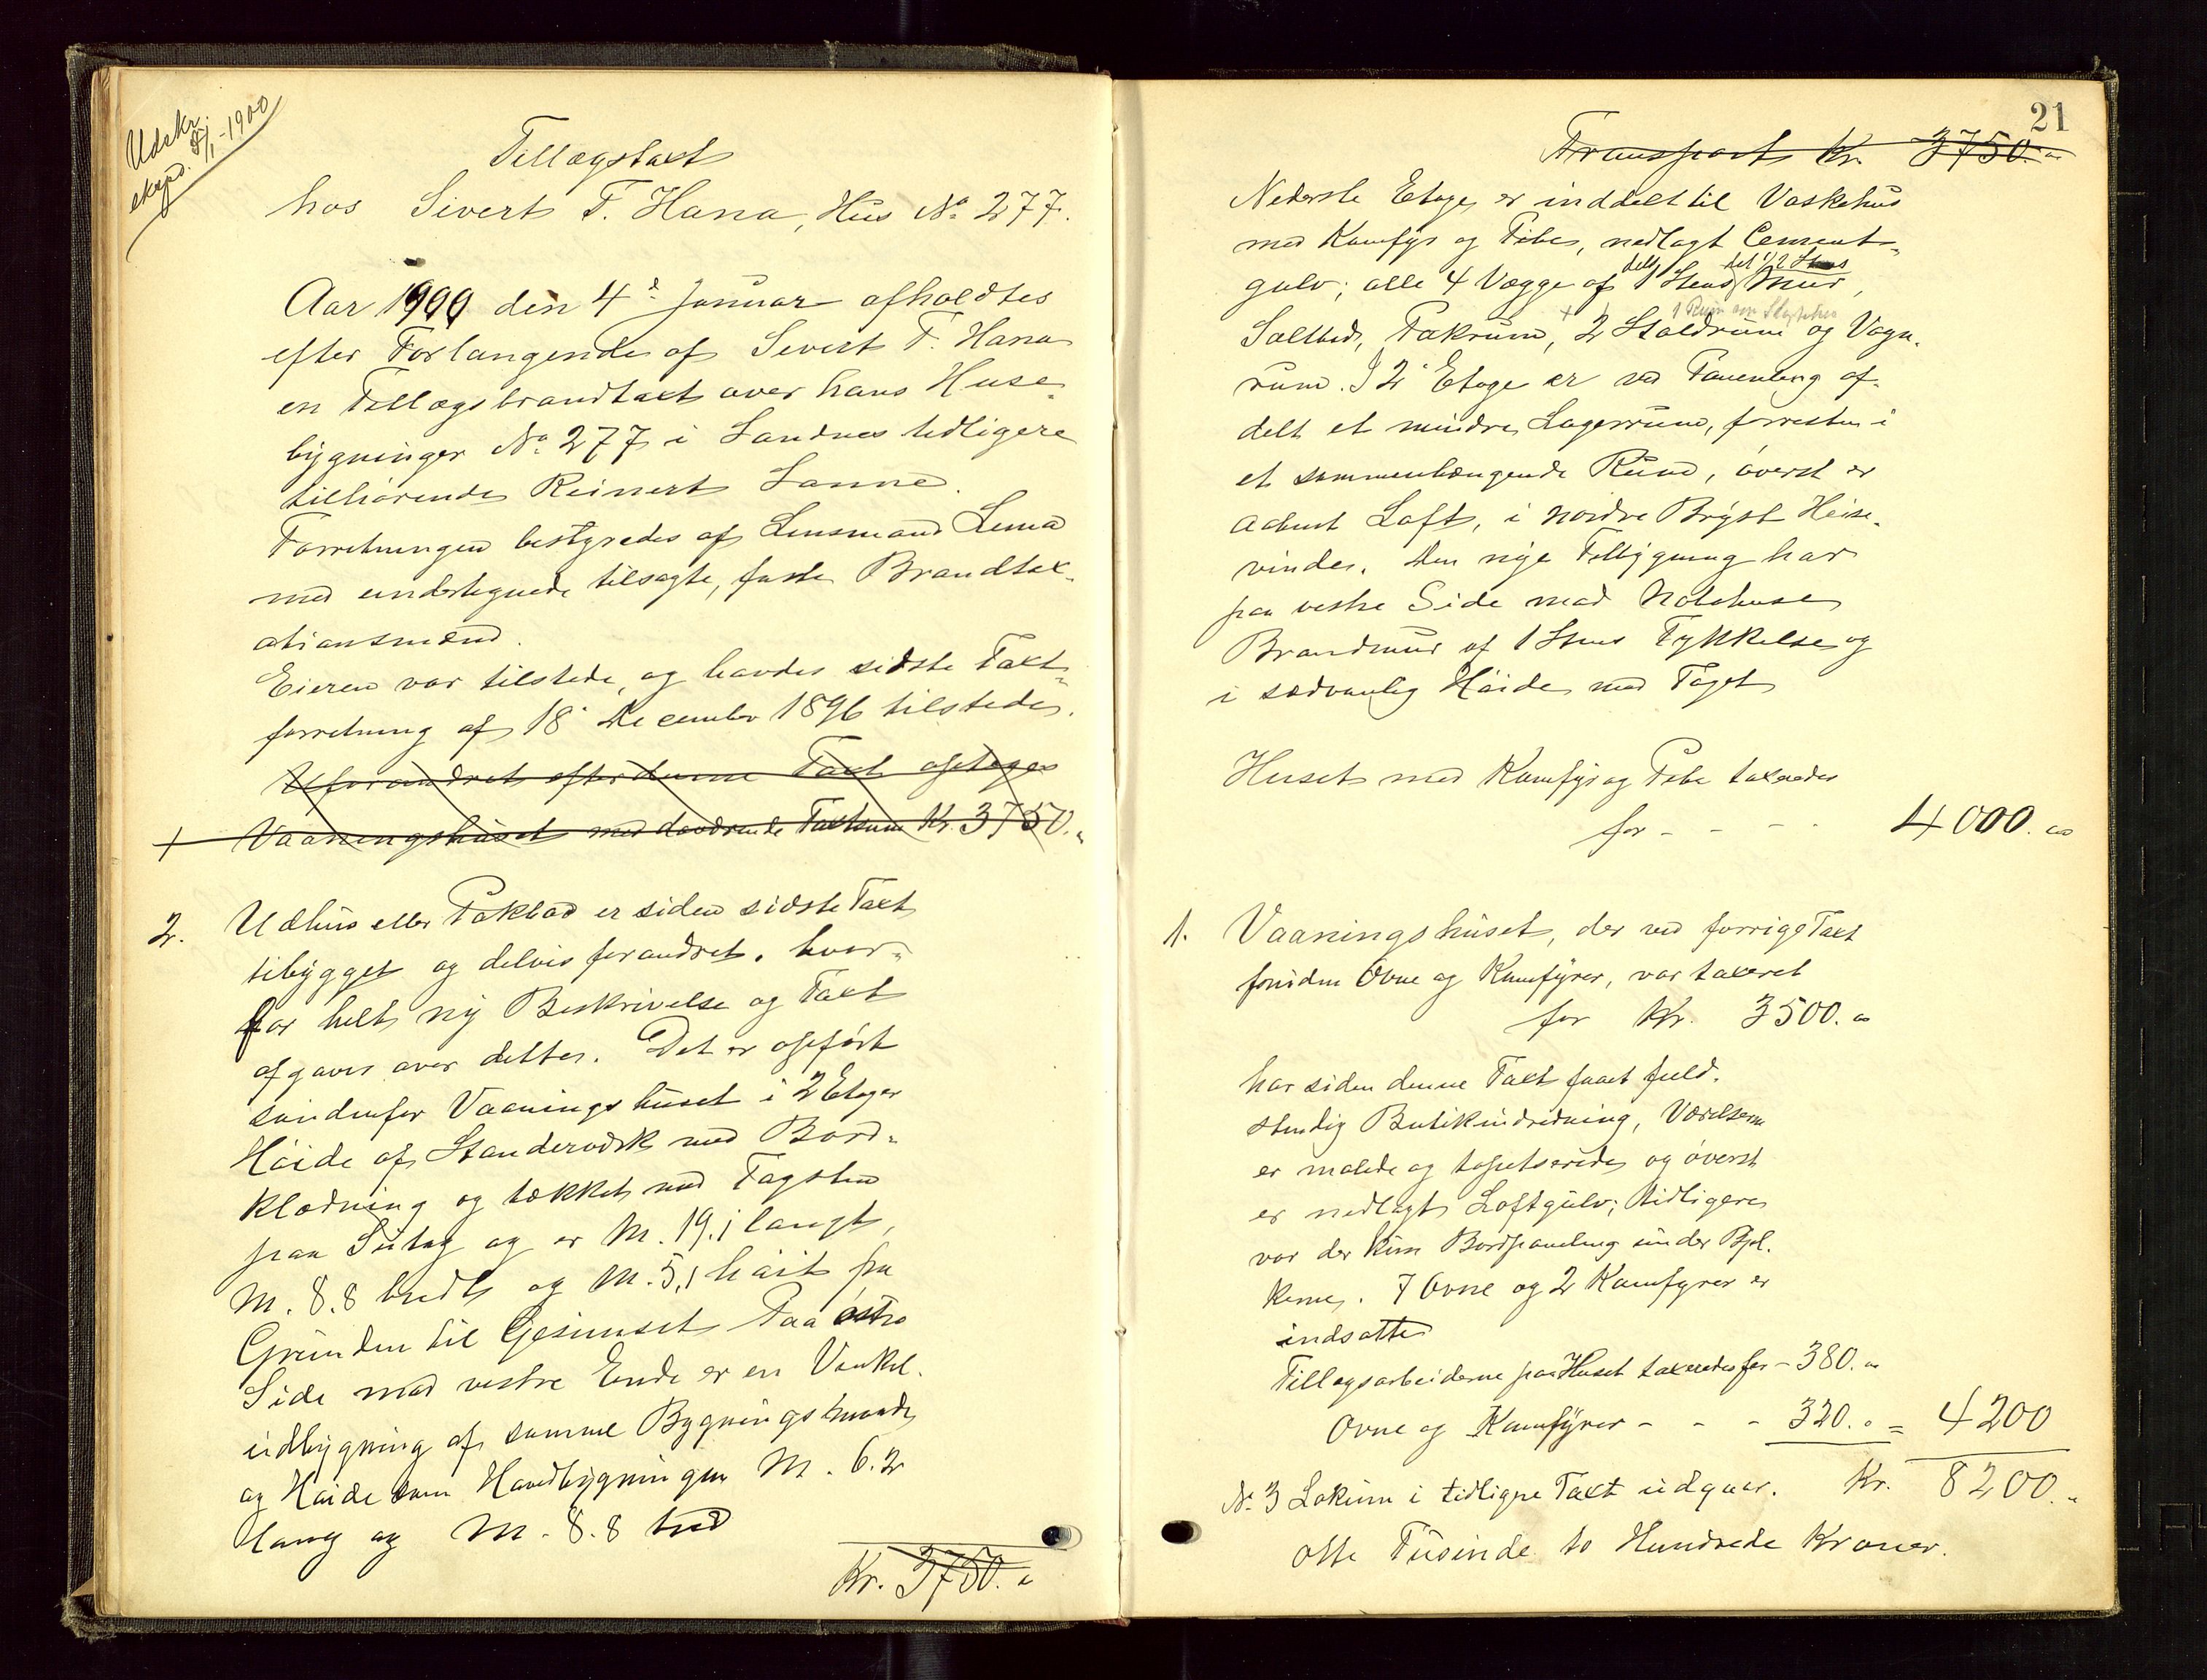 Udskr.
eksp. 8/1-1900
Tillægstaxt
hos Sivert T. Hana, Hus No 277.
Aar 1900 den 4de Januar afholdtes
efter Forlangende af Sivert T. Hana
en Tillægsbrandtaxt over hans Huse-
bygninger No 277 i Sandnes tidligere
tilhørende Reinert Sanne.
Forretningen bestyredes af Lensmand Lima
med undertegnede tilsagte, faste Brandtax-
ationsmænd.
Eieren var tilstede, og havdes sidste Taxt-
forretning af 18de December 1896 tilstede.
Uforandret efter denne Taxt optages
+ Vaaningshuset med davdrende Taxtsum Kr. 3750.
2. Udhus eller Pakbod er siden sidste Taxt
tilbygget og delvis forandret, hvor-
for helt ny Beskrivelse og Taxt
afgaves over dette. Det er opført
søndenfor Vaaningshuset i 2 Etager
Høide af Standerværk med Bord-
klædning og tækket med Tagsten
paa Sutag og er M. 19.1 langt,
M. 8.8 bredt og M. 5.1 høit fra
Grunden til Gesimset. Paa østre
Side mod vestre Ende er en Vinkel-
udbygning af samme Bygningsmaade
og Høide som Hovedbygningen M. 6.2
lang og M. 8.8 bred
Kr. 3750.
21
Transport Kr. 3750.
Nederste Etage er inddelt til Vaskehus
med Komfyr og Pibe, nedlagt Cement-
gulv; alle 4 Vægge af dels 1 Stens dels 1/2 Stens Mur,
Saltbod, Pakrum, + 2 Staldrum 1 Rum om Slagtehus og Vogn-
rum. I 2de Etage er ved Panenling af-
delt et mindre Lagerrum, forresten i
et sammenhængende Rum, øverst er
aabent Loft, i nordre Bryst Heise-
vinde. Den nye Tilbygning har
paa vestre Side mod Nabohuse
Brandmur af 1 Stens Tykkelse og
i sædvanlig Høide med Taget
Huset med Komfyr og Pibe taxeredes
for - - - 4000.
1. Vaaningshuset, der ved forrige Taxt
foruden Ovne og Komfyrer, var taxeret
for Kr. 3500.
har siden denne Taxt faaet fuld-
stendig Butikindredning, Værelserne
er malede og tapetserede og øverst
er nedlagt Loftgulv; tidligere
var der kun Bordpaneling under Bjel-
kerne. 7 Ovne og 2 Komfyrer er
indsatte
Tillægsarbeiderne paa Huset taxeredes for - 380.
Ovne og Komfyrer - - - 320. = 4200
No 3 Lokum i tidligere Taxt udgaar. Kr. 8200.
Otte Tusinde to Hundrede Kroner.